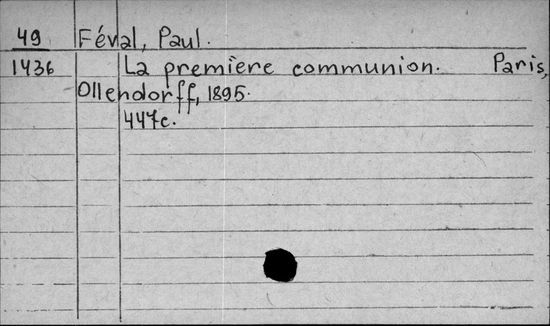 49 Féval, Paul.
1436 La première communion. Paris,
Ollendorff, 1895.
447c.